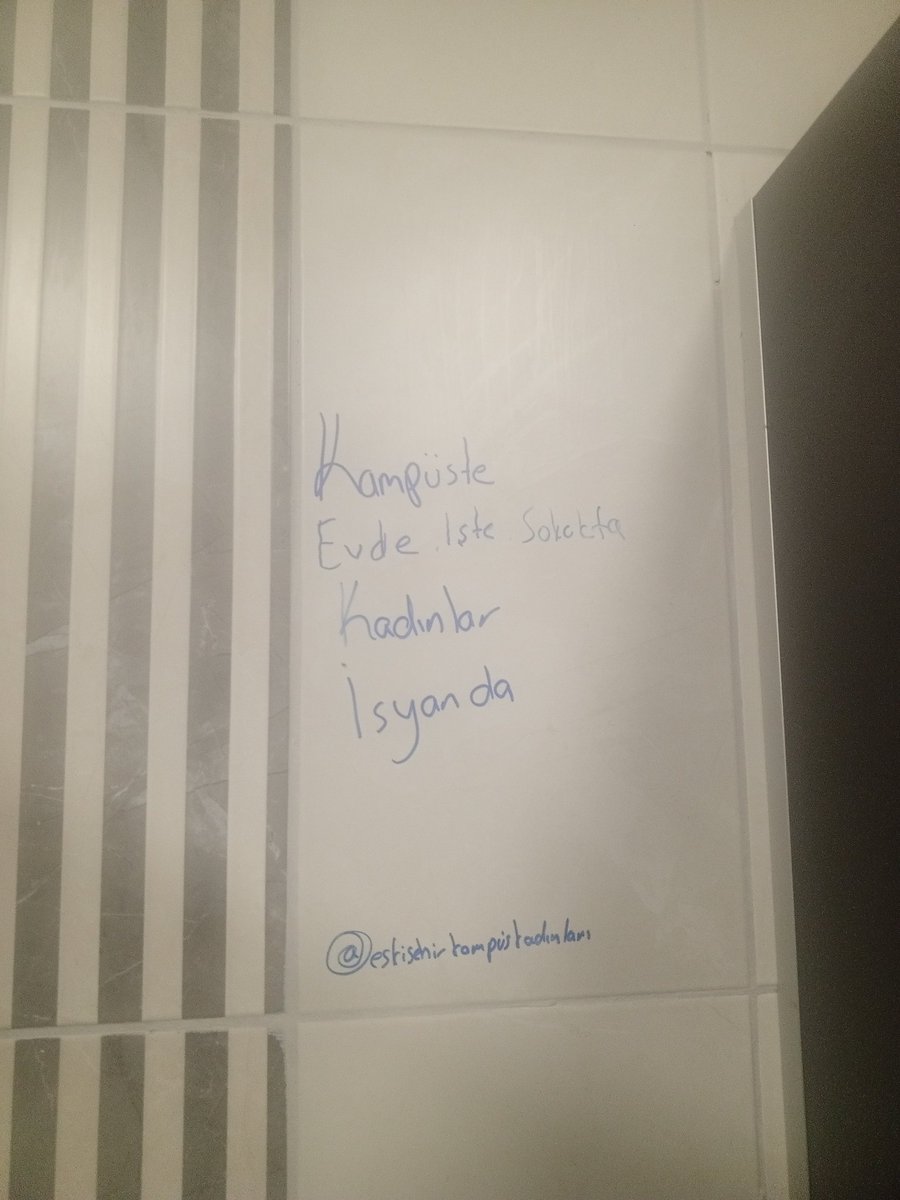 Kampüste
Evde. İşte. Sokakta
Kadınlar
İsyanda
@eskisehirkampüskadınları